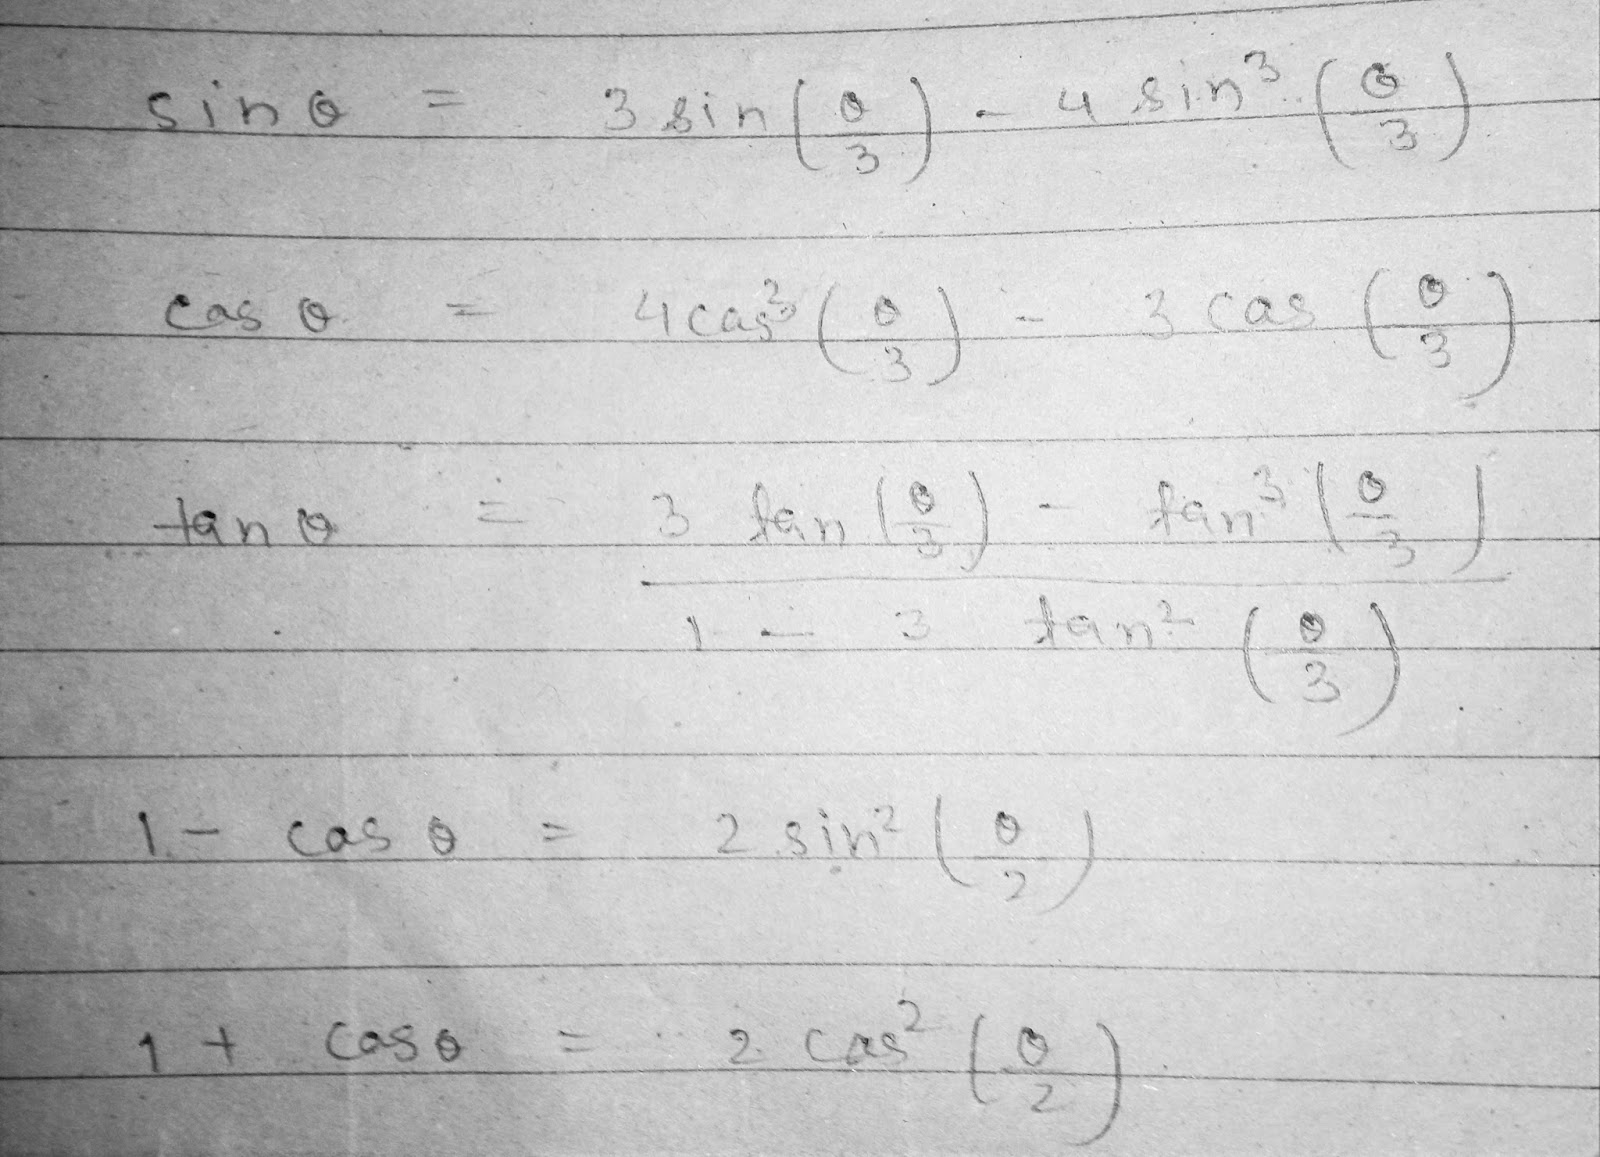 sin θ = 3 sin (θ/3) - 4 sin³ (θ/3)
cos θ = 4 cos³ (θ/3) - 3 cos (θ/3)
tan θ = 3 tan (θ/3) - tan³ (θ/3)
1 - 3 tan² (θ/3)
1 - cos θ = 2 sin² (θ/2)
1 + cos θ = 2 cos² (θ/2)